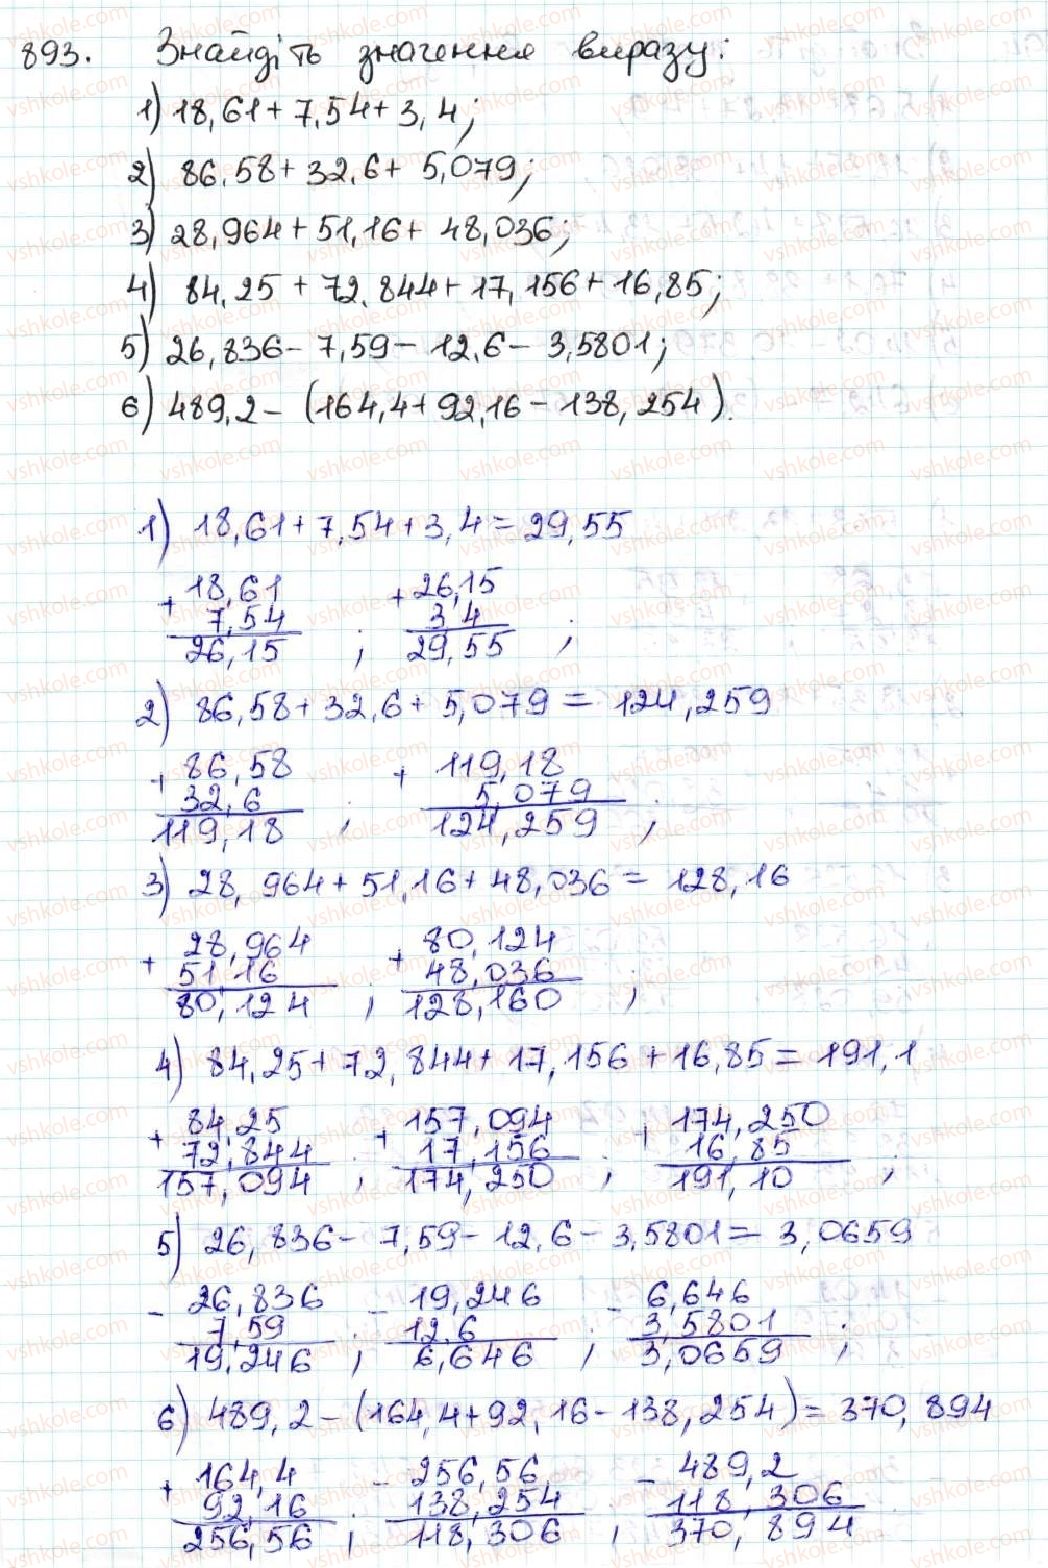 893. Знайдіть значення виразу:
1) 18,61 + 7,54 + 3,4;
2) 86,58 + 32,6 + 5,079;
3) 28,964 + 51,16 + 48,036;
4) 84,25 + 72,844 + 17,156 + 16,85;
5) 26,836 - 7,59 - 12,6 - 3,5801;
6) 489,2 - (164,4 + 92,16 - 138,254).
1) 18,61 + 7,54 + 3,4 = 29,55
+ 18,61 + 26,15
7,54 3 4
26,15 ; 29,55 ;
2) 86,58 + 32,6 + 5,079 = 124,259
+ 86,58 + 119,18
32,6 5,079
119,18 ; 124,259 ;
3) 28,964 + 51,16 + 48,036 = 128,16
+ 28,964 + 80,124
51,16 48,036
80,124 ; 128,160 ;
4) 84,25 + 72,844 + 17,156 + 16,85 = 191,1
+ 84,25 + 157,094 + 174,250
72,844 17,156 16,85
157,094 ; 174,250 ; 191,10 ;
5) 26,836 - 7,59 - 12,6 - 3,5801 = 3,0659
- 26,836 - 19,246 - 6,646
7,59 12,6 3,5801
19,246 ; 6,646 ; 3,0659 ;
6) 489,2 - (164,4 + 92,16 - 138,254) = 370,894
+ 164,4 - 256,56 - 489,2
92,16 138,254 118,306
256,56 ; 118,306 ; 370,894